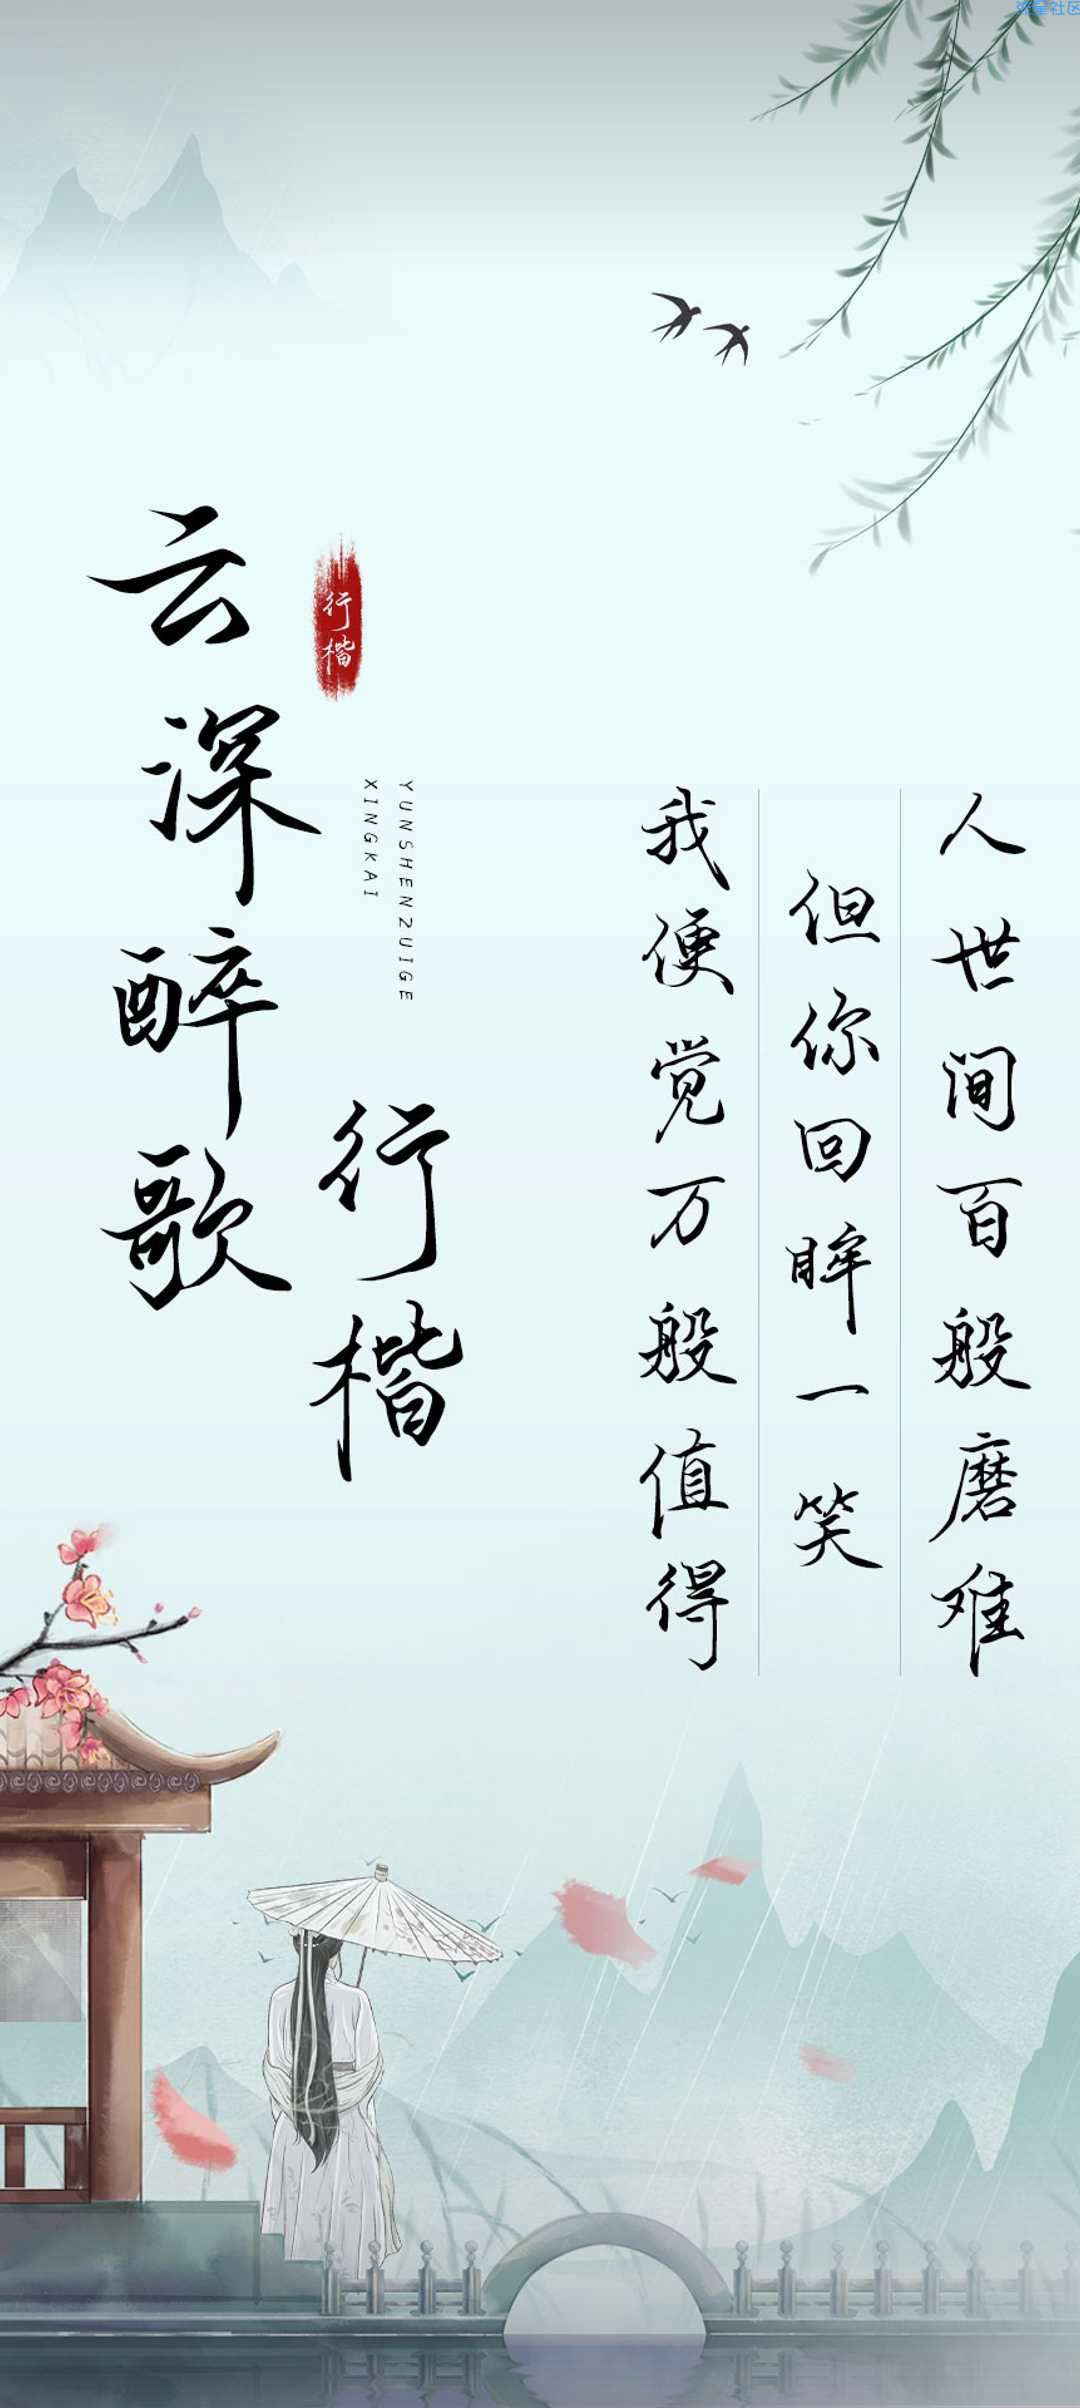 流星社区
云深醉歌
行楷
行楷
YUNSHENZUIGE
XINGKAI
人世间百般磨难
但你回眸一笑
我便觉万般值得